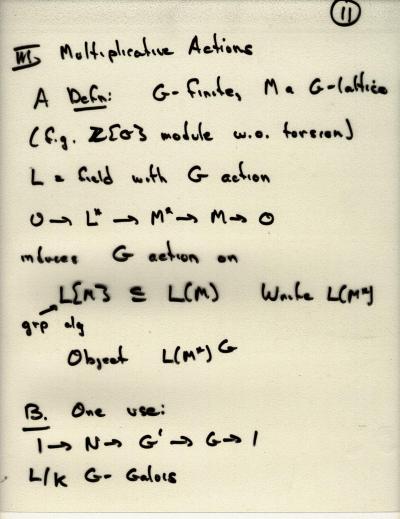 11
III. Multiplicative Actions
A Defn: G-finite, M a G-lattice
(f.g. Z[G] module w.o. torsion)
L = field with G action
0 → L* → M* → M → 0
induces G action on
L[M] ⊆ L(M) Write L(M*)
grp alg
Object L(M*)^G
B. One use:
1 → N → G' → G → 1
L/K G-Galois